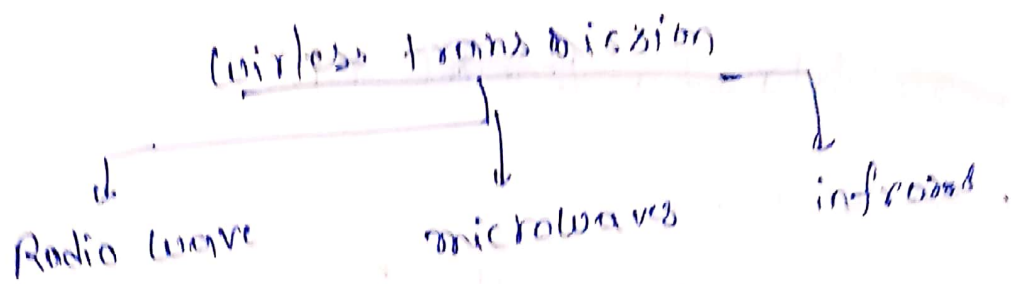 wirless transmission
Radio wave microwaves infrared.